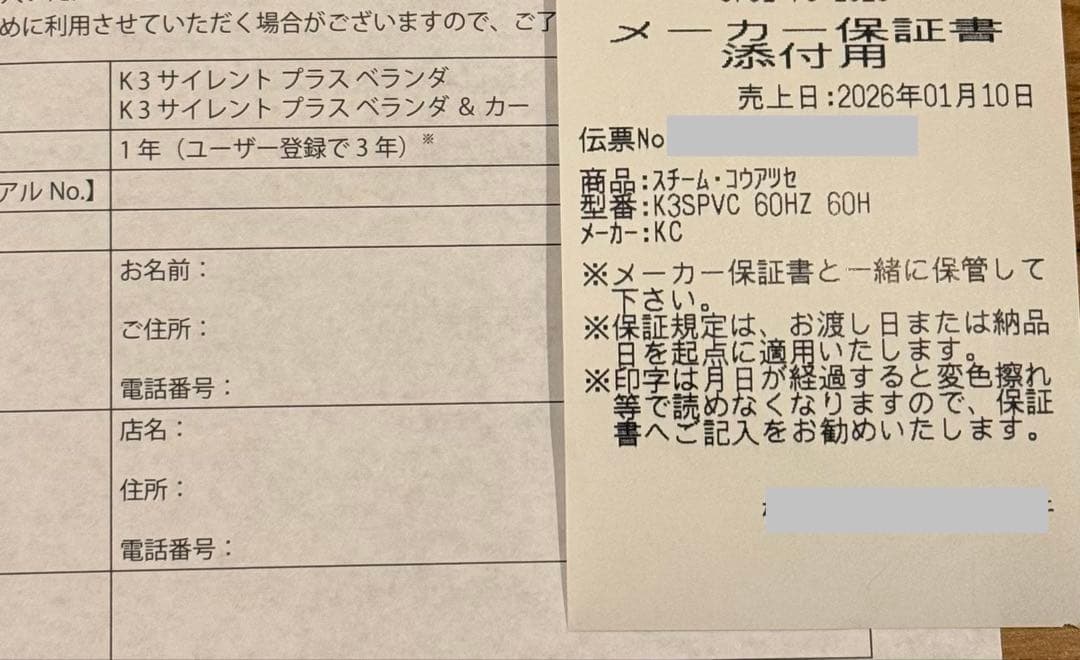 めに利用させていただく場合がございますので、ご了
K 3 サイレント プラス ベランダ
K 3 サイレント プラス ベランダ & カー
1 年（ユーザー登録で 3 年）※
アル No.】
お名前：
ご住所：
電話番号：
店名：
住所：
電話番号：
メーカー保証書
添付用
売上日:2026年01月10日
伝票No
商品:スチーム・コウアツセ
型番:K3SPVC 60HZ 60H
メーカー:KC
※メーカー保証書と一緒に保管して
下さい。
※保証規定は、お渡し日または納品
日を起点に適用いたします。
※印字は月日が経過すると変色擦れ
等で読めなくなりますので、保証
書へご記入をお勧めいたします。